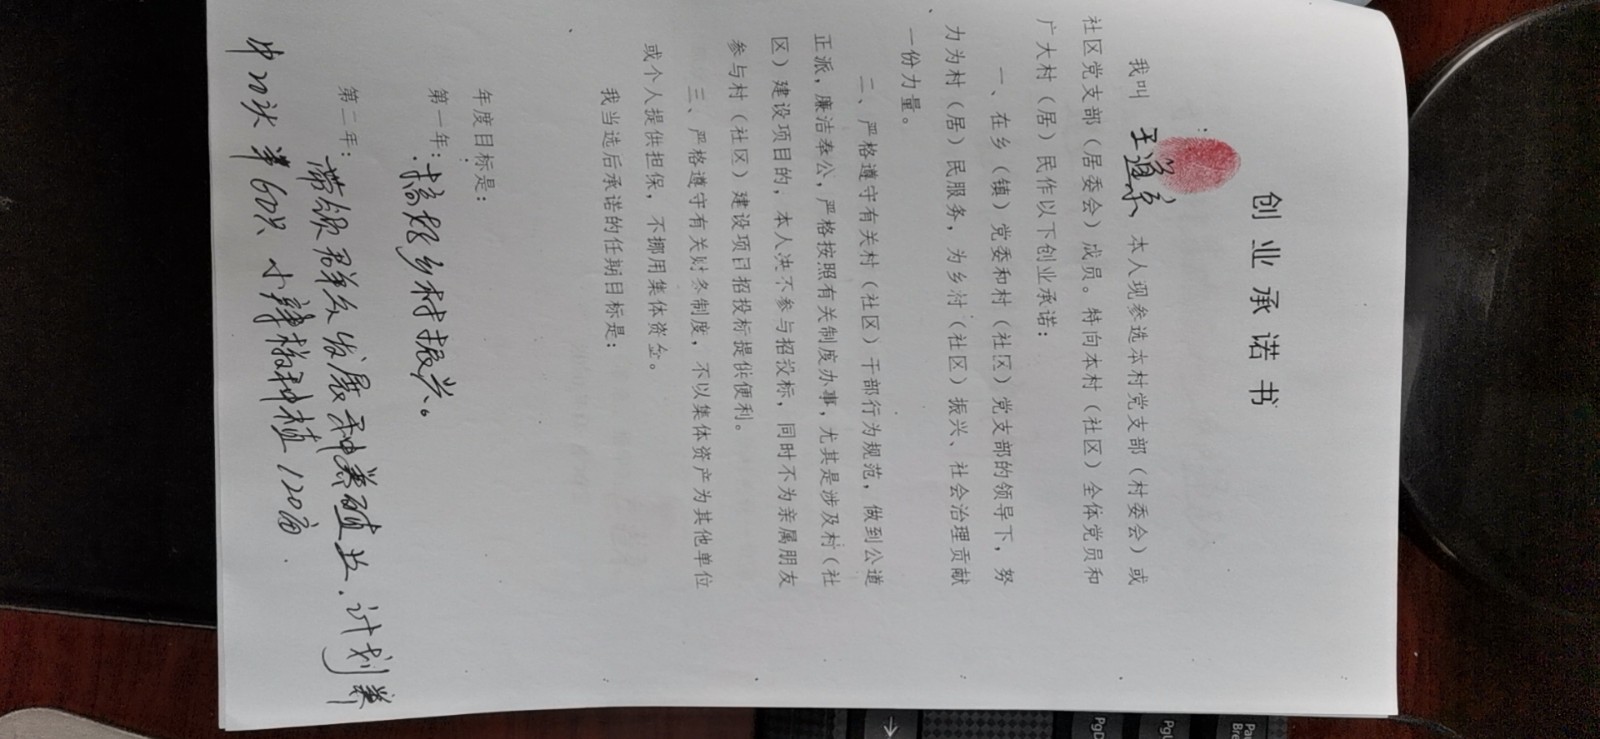 创业承诺书
我叫 王道 本人现参选本村党支部（村委会）或
社区党支部（居委会）成员。特向本村（社区）全体党员和
广大村（居）民作以下创业承诺：
一、在乡（镇）党委和村（社区）党支部的领导下，努
力为村（居）民服务，为乡村（社区）振兴、社会治理贡献
一份力量。
二、严格遵守有关村（社区）干部行为规范，做到公道
正派，廉洁奉公，严格按照有关制度办事，尤其是涉及村（社
区）建设项目的，本人决不参与招投标，同时不为亲属朋友
参与村（社区）建设项目招投标提供便利。
三、严格遵守有关财务制度，不以集体资产为其他单位
或个人提供担保，不挪用集体资金。
我当选后承诺的任期目标是：
年度目标是：
第一年：搞好乡村振兴。
第二年：带领群众发展种养殖业，计划养
牛20头 羊60只 小辣椒种植120亩.
PgD
PgU
Pau
Bre